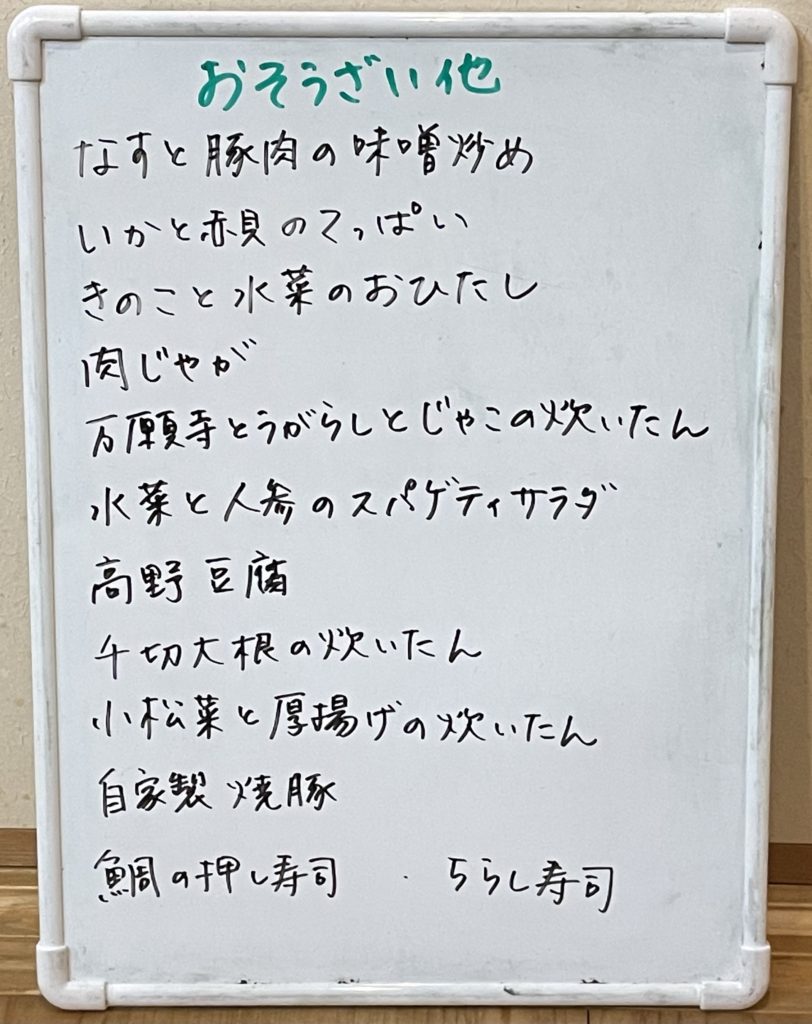 おそうざい他
なすと豚肉の味噌炒め
いかと赤貝のてっぱい
きのこと水菜のおひたし
肉じゃが
万願寺とうがらしとじゃこの炊いたん
水菜と人参のスパゲティサラダ
高野豆腐
千切大根の炊いたん
小松菜と厚揚げの炊いたん
自家製焼豚
鯛の押し寿司 ・ ちらし寿司